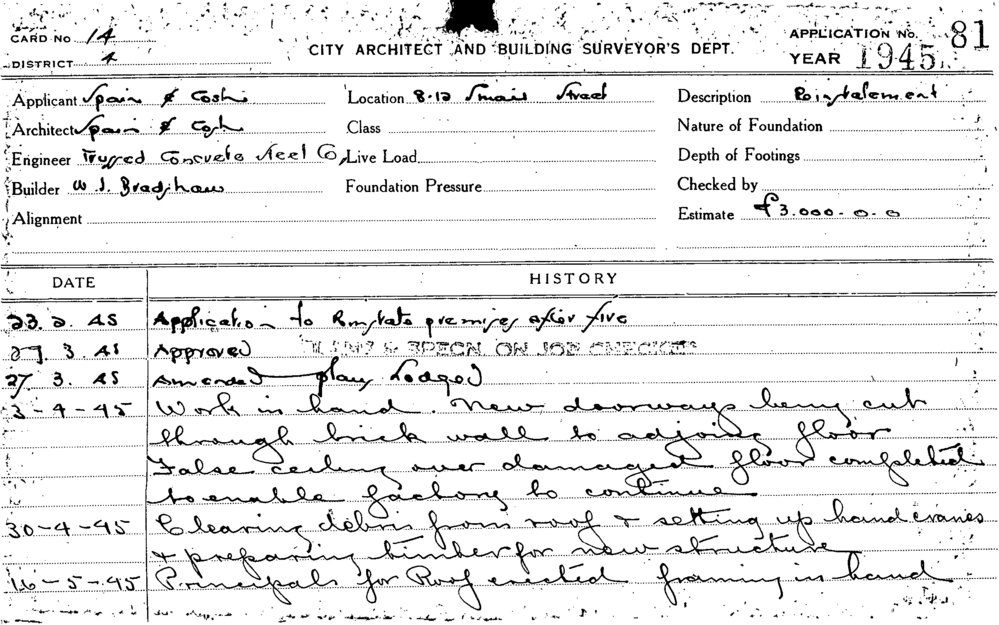 CARD NO 14
DISTRICT 4
CITY ARCHITECT AND BUILDING SURVEYOR'S DEPT.
APPLICATION NO. 81
YEAR 1945
Applicant Spain & Cosh Location 8-12 Smail Street Description Reinstatement
Architect Spain & Cosh Class Nature of Foundation
Engineer Trussed Concrete Steel Co Live Load Depth of Footings
Builder W. J. Bradshaw Foundation Pressure Checked by
Alignment Estimate £3.000-0-0
DATE HISTORY
23. 2. 45 Application to Reinstate premises after fire
27. 3. 45 Approved PLANS & SPECN. ON JOB CHECKED
27. 3. 45 Amended plans Lodged
3-4-45 Work in hand. New doorways being cut
through brick wall to adjoing floor
False ceiling over damaged floor completed
to enable factory to continue
30-4-45 Clearing debris from roof & setting up hand cranes
& preparing timber for new structure
16-5-45 Principals for Roof erected framing in hand